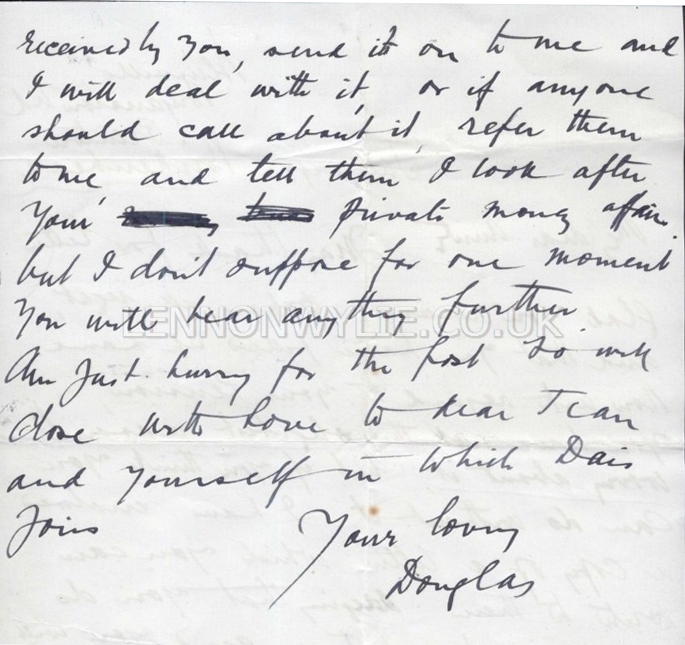 received by you, send it on to me and
I will deal with it, or if anyone
should call about it, refer them
to me, and tell them I look after
your private money affairs
but I don't suppose for one moment
you will hear anything further.
LENNONWYLIE.CO.UK
Am just hurry for the post so will
close with love to dear Jean
and yourself in which Dais
joins
Your loving
Douglas